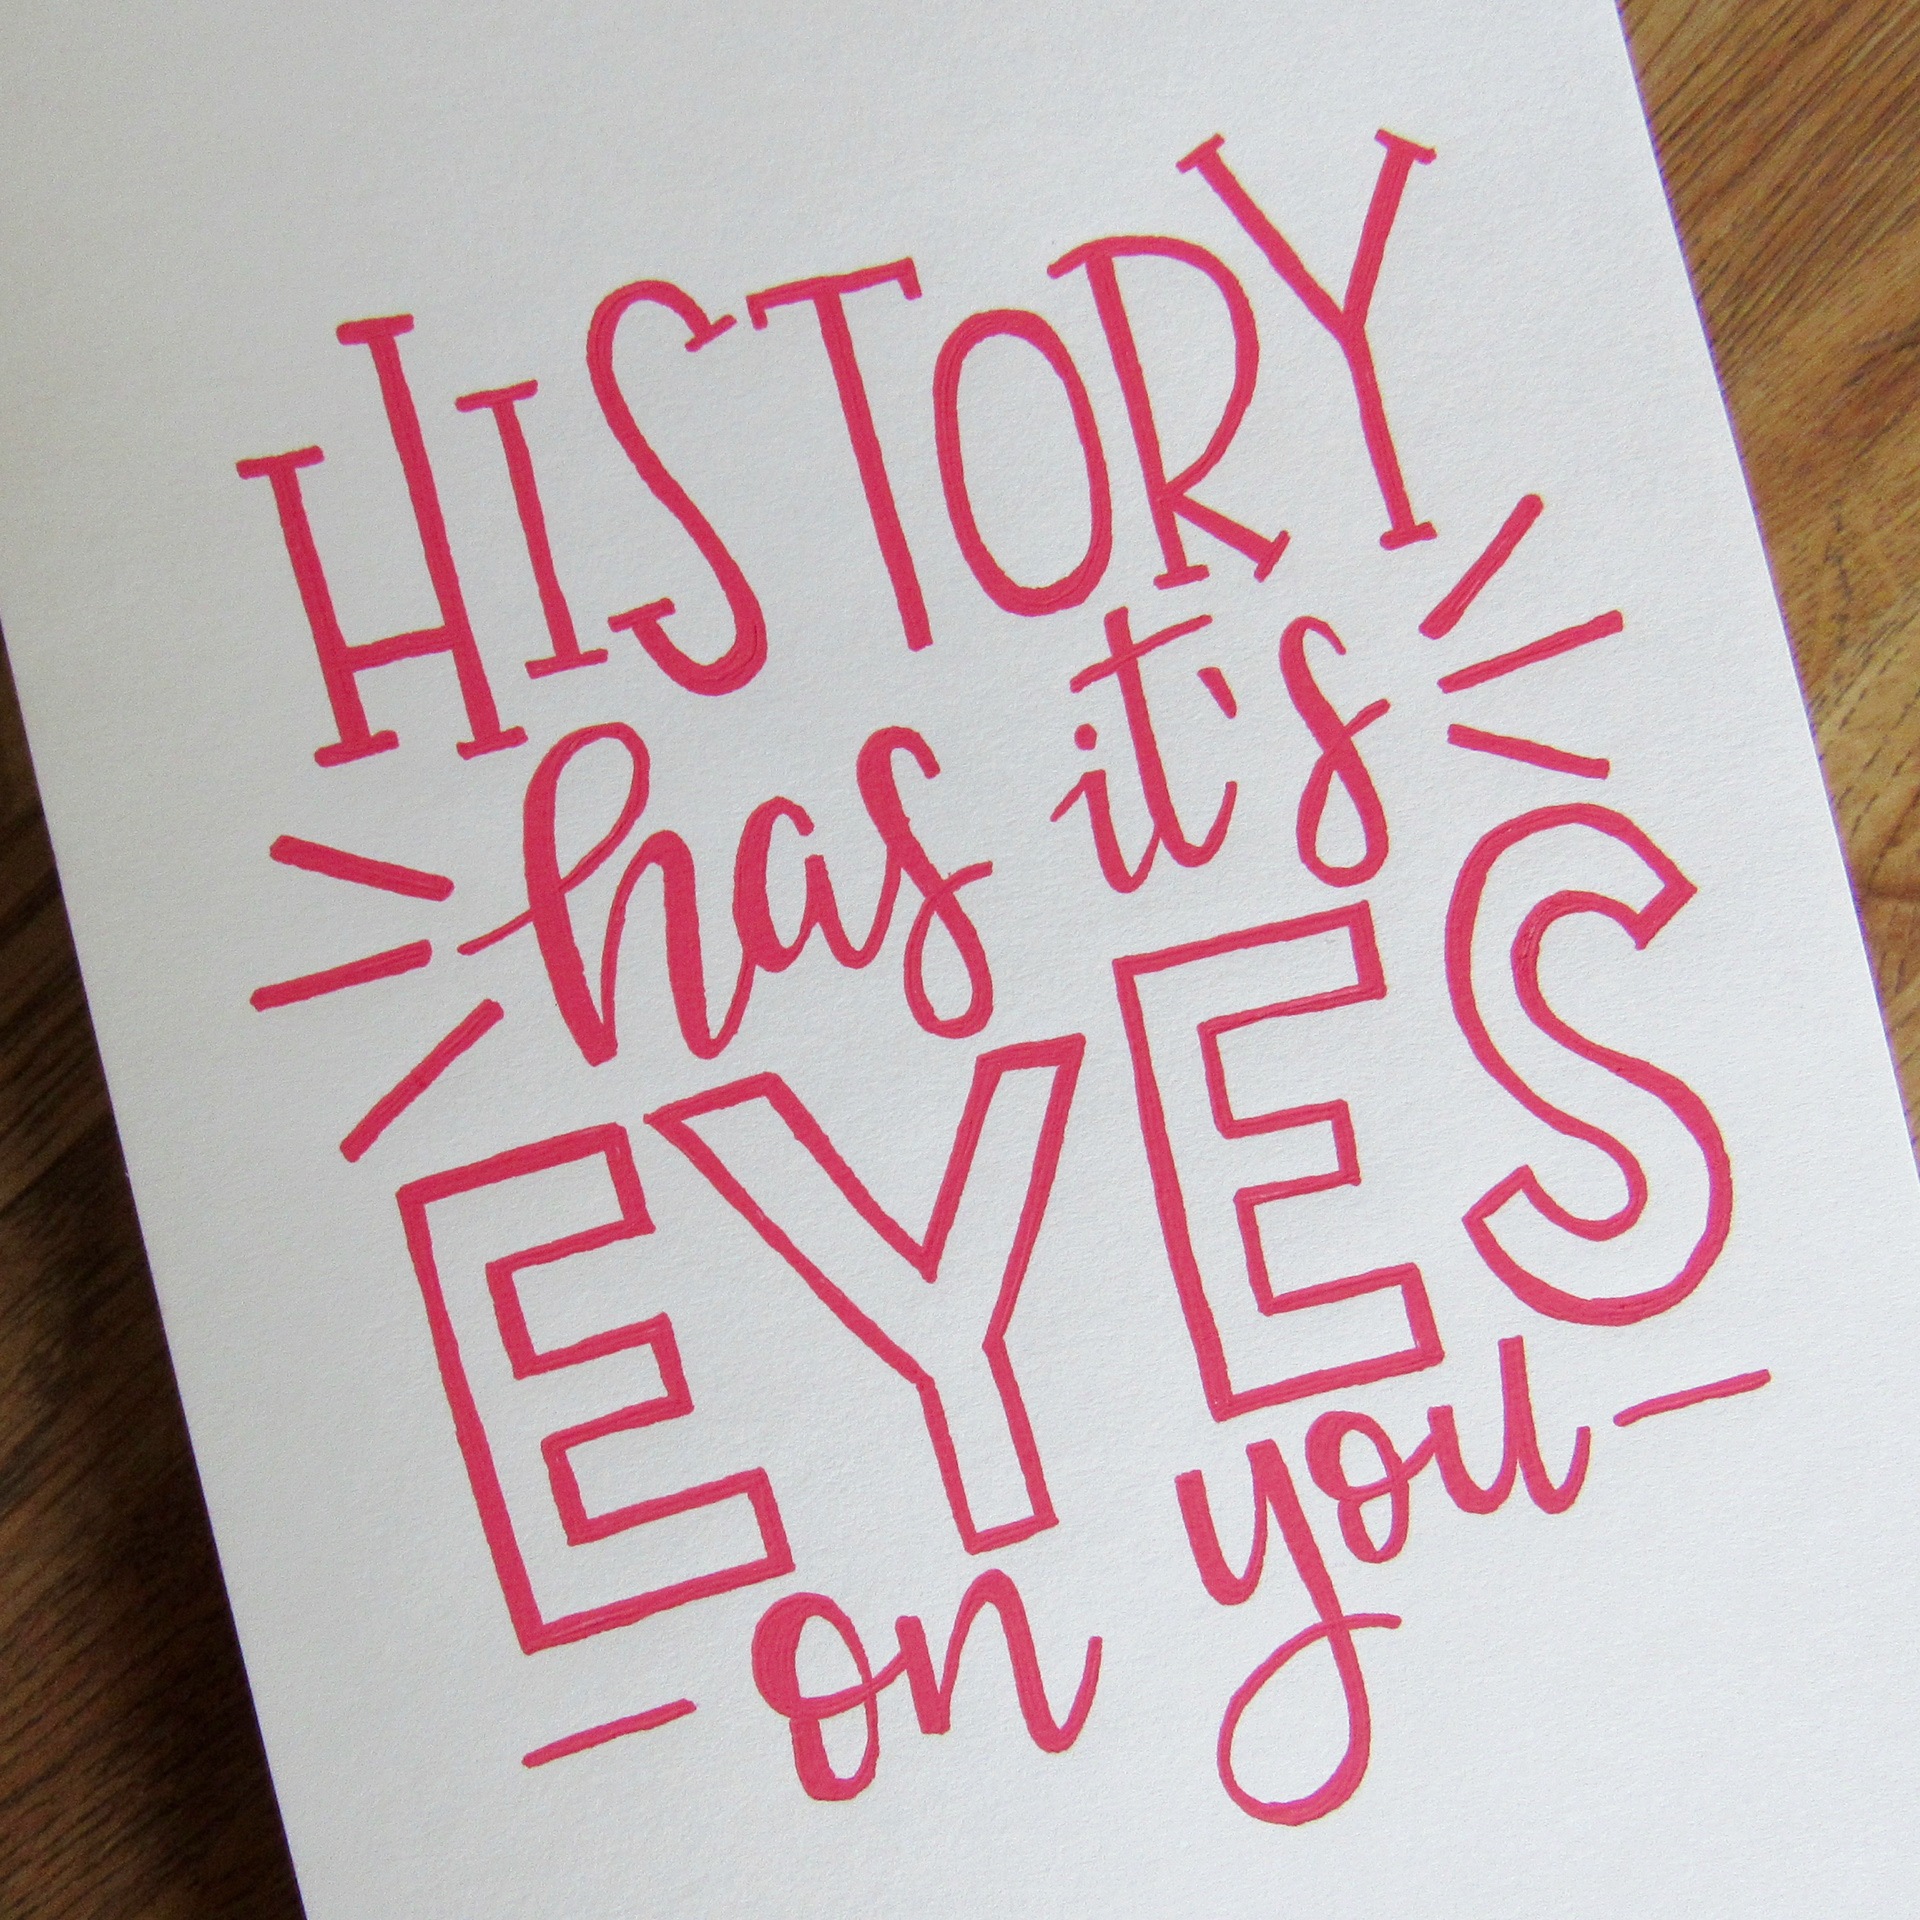 HISTORY
has it's
EYES
on you